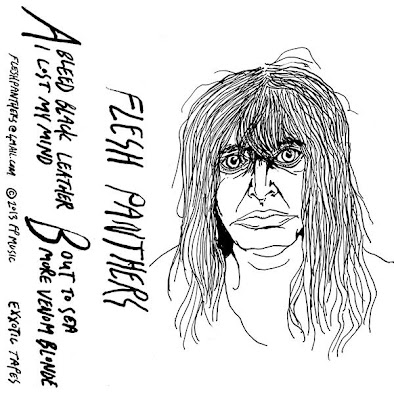 FLESH PANTHERS
A BLEED BLACK LEATHER
I LOST MY MIND
B OUT TO SEA
MORE VENOM BLONDE
FLESHPANTHERS@GMAIL.COM © 2013 FP MUSIC EXXOTIC TAPES